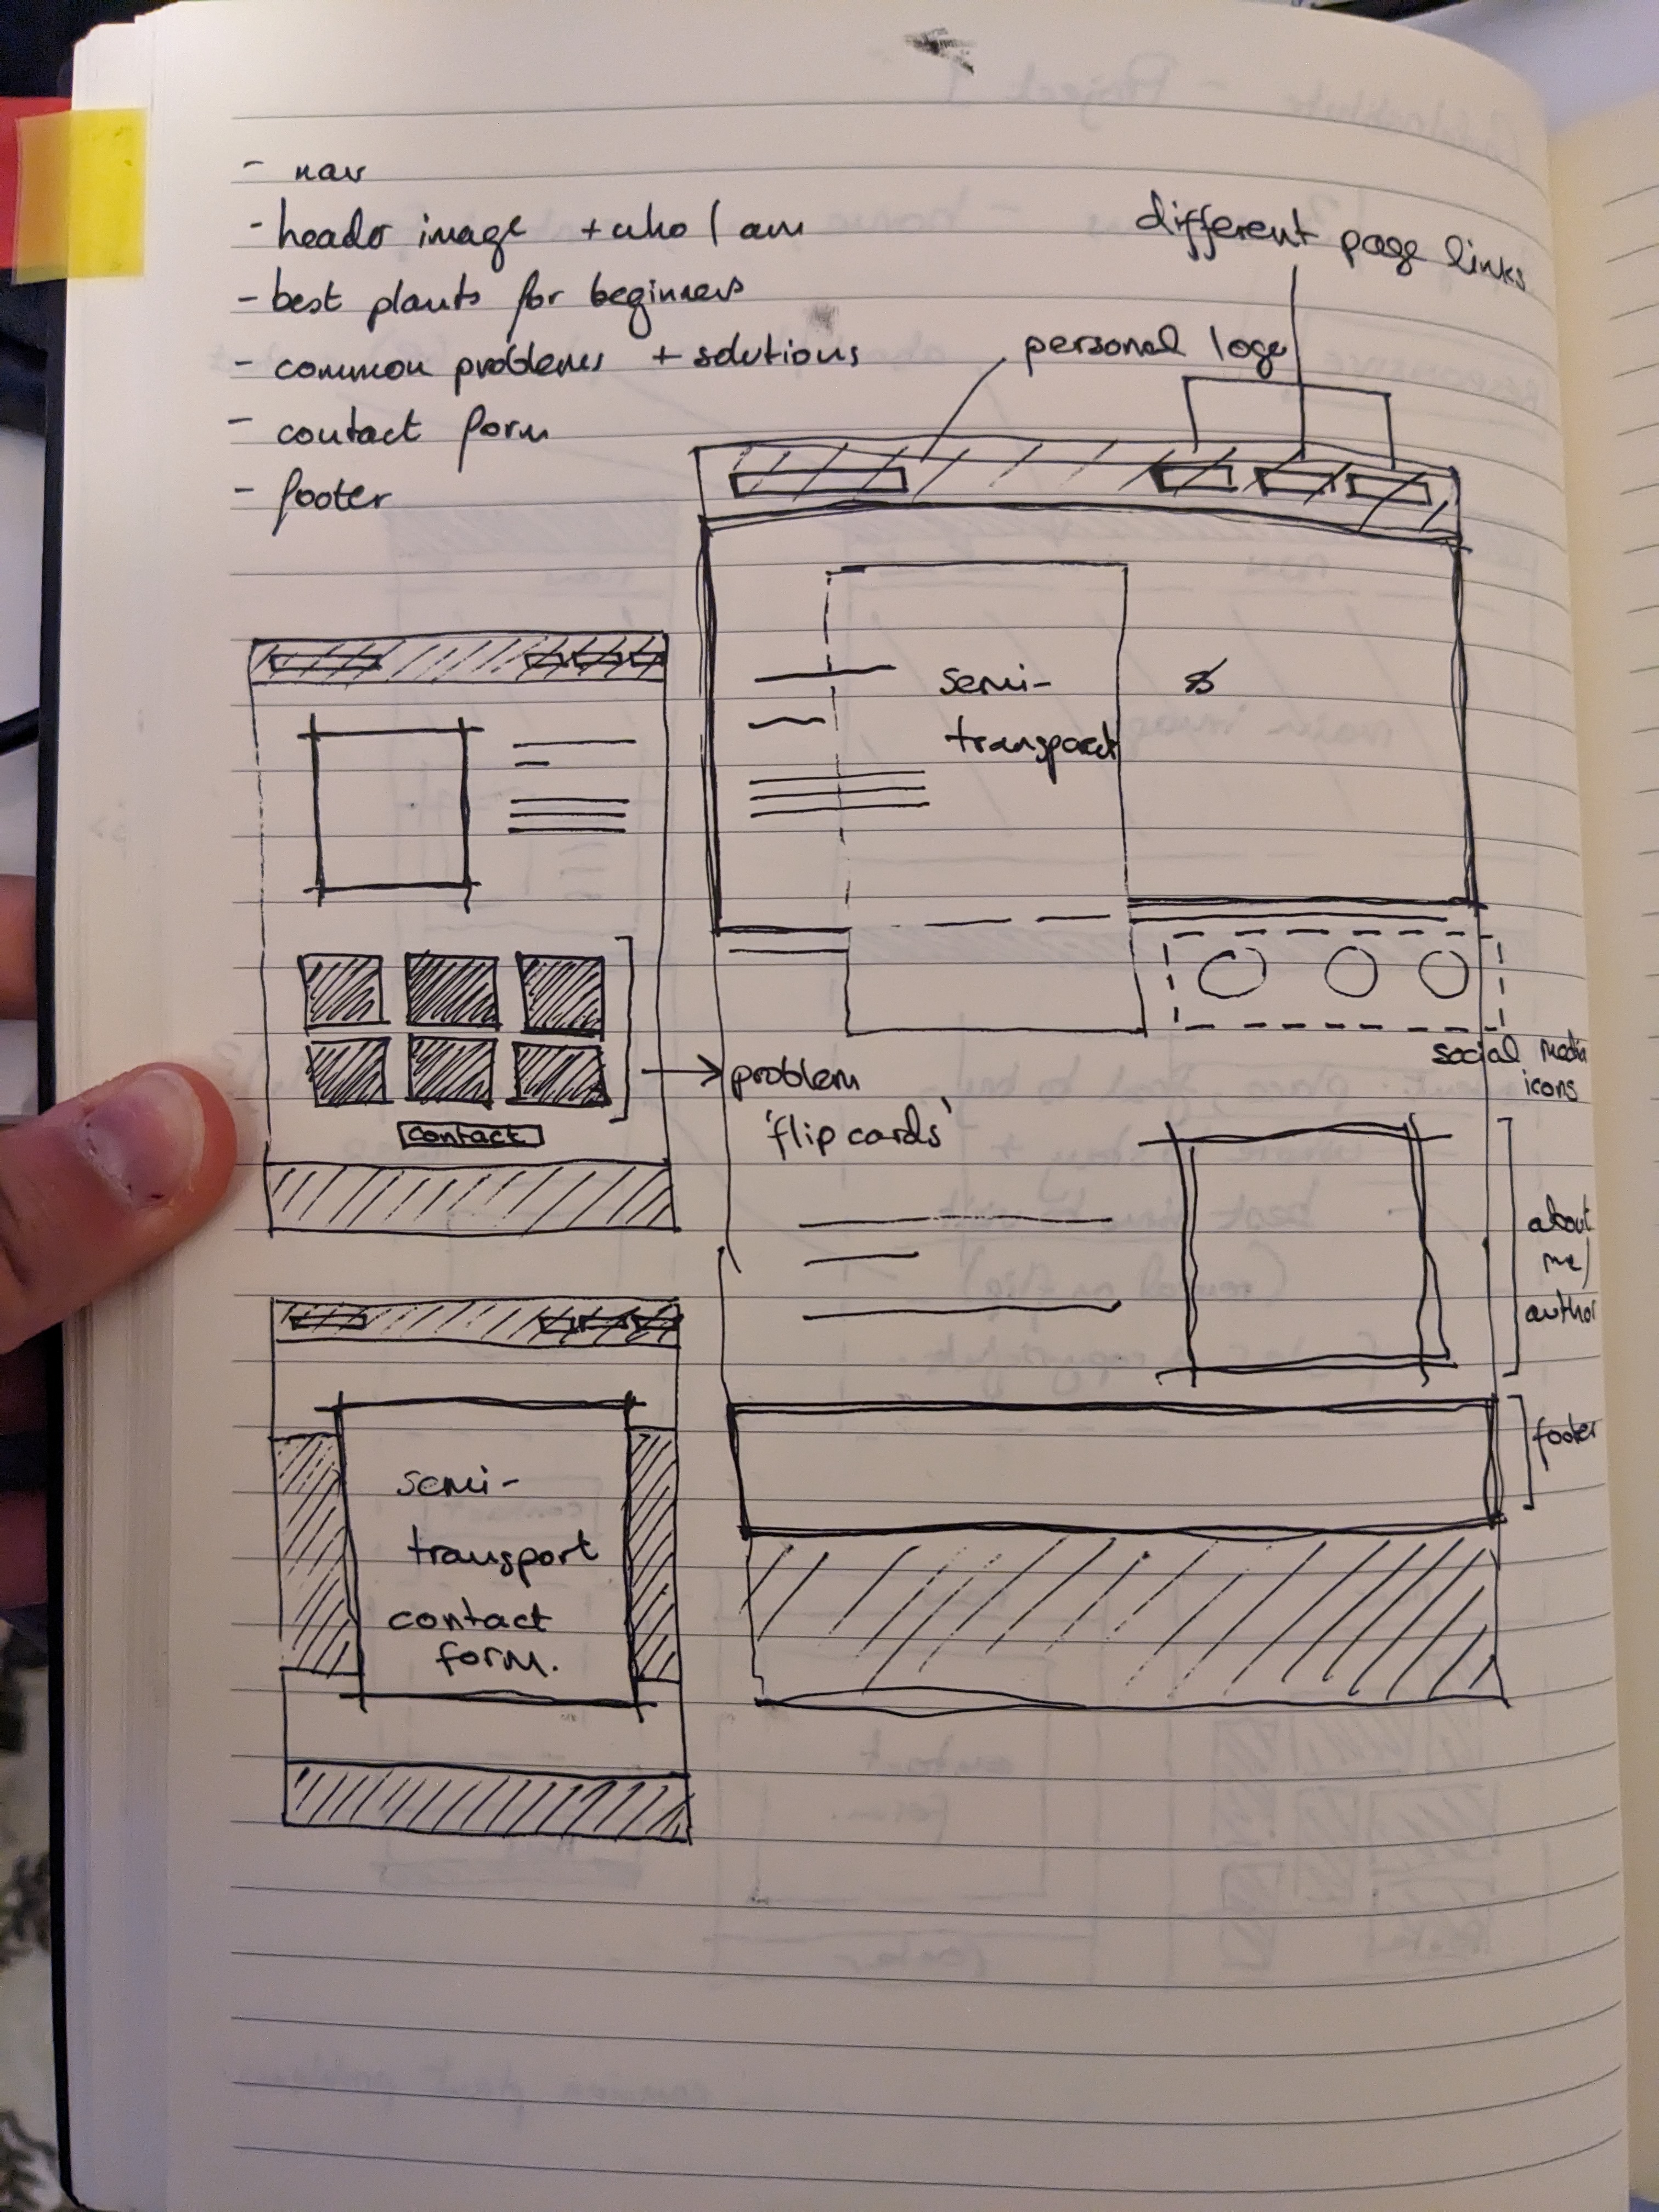 - nav
- header image + who I am
- best plants for beginners
- common problems + solutions
- contact form
- footer
different page links
personal logo
semi-
transparent
social media
icons
problem
'flip cards'
contact
about
me/
author
footer
semi-
transport
contact
form.